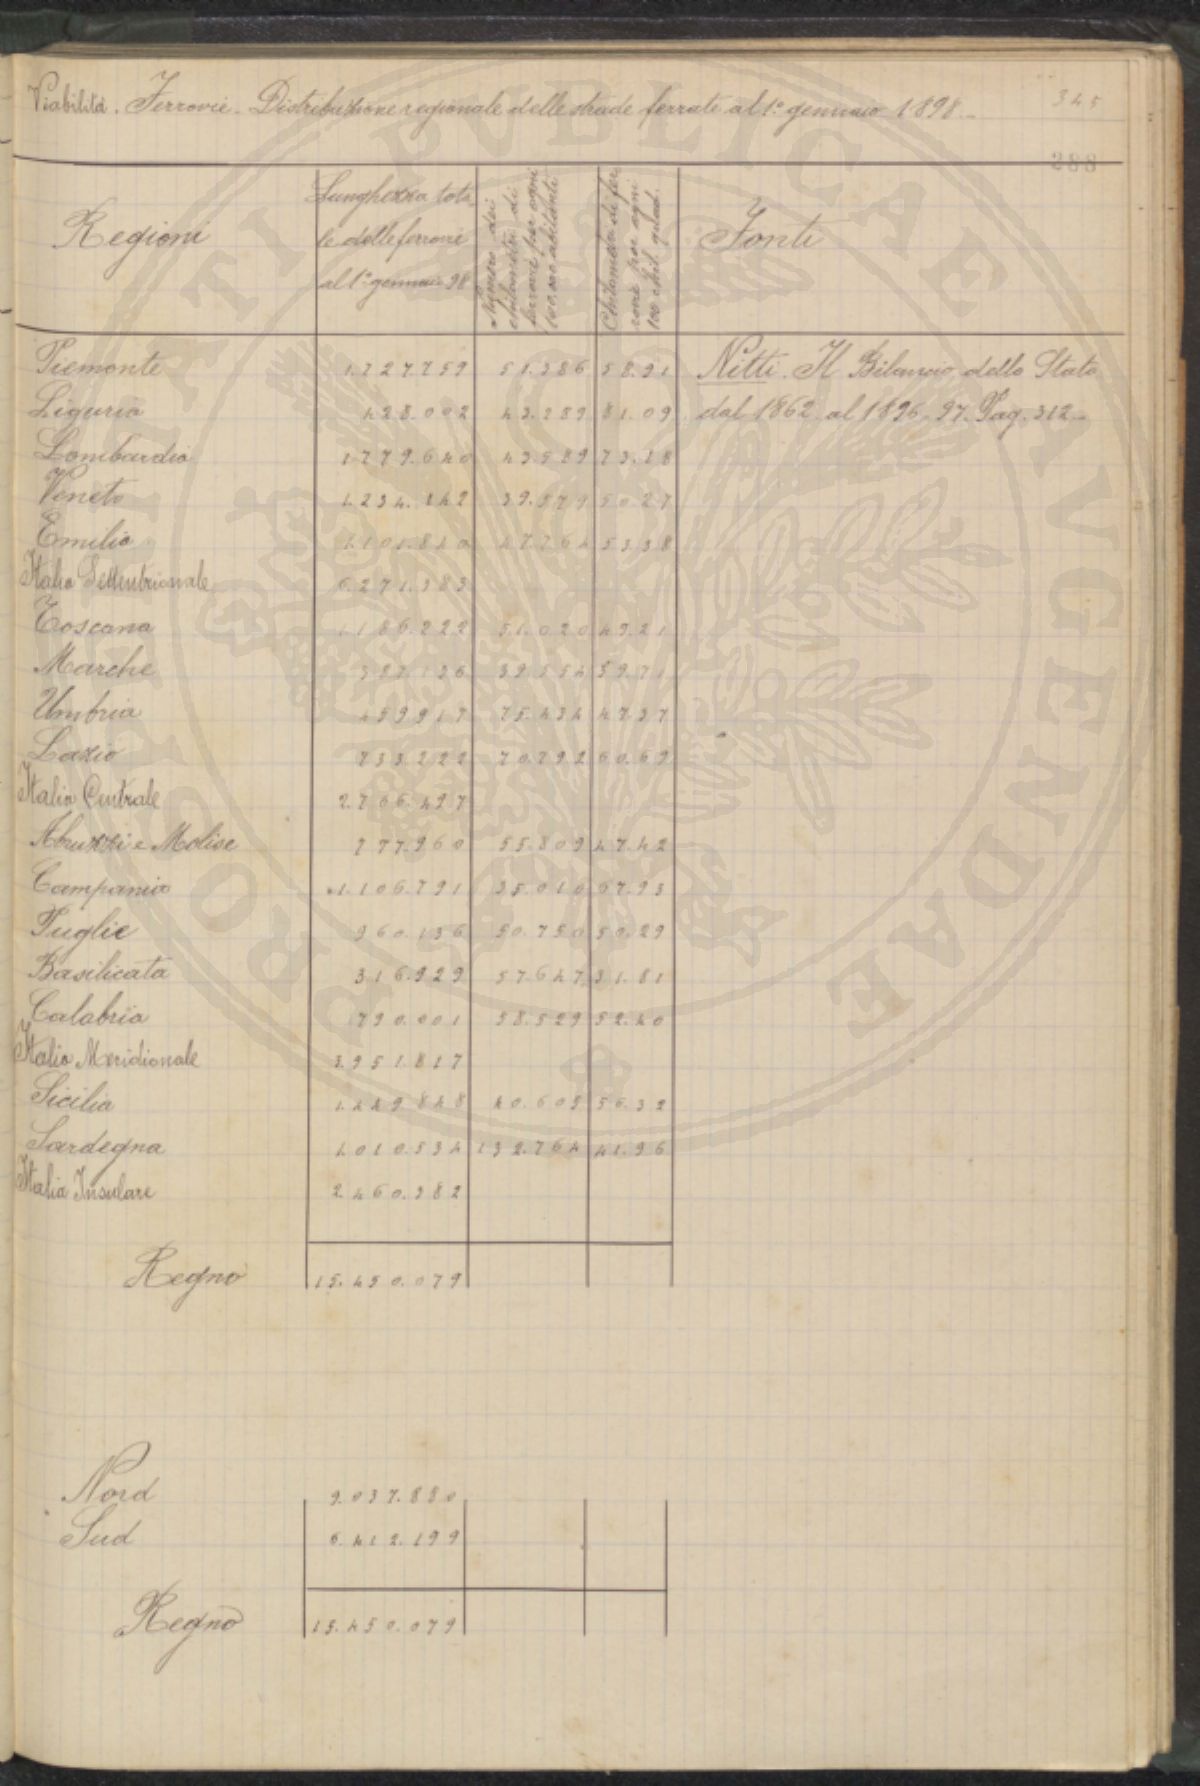 345
Viabilità. Ferrovie. Distribuzione regionale delle strade ferrate al 1° gennaio 1898.
288
Regioni
Lunghezza tota
le delle ferrovie
al 1° gennaio 98
Numero dei
chilometri di
ferrovie per ogni
100.000 abitanti
Chilometri di fer
rovie per ogni
100 chil. quad.
Fonti
Piemonte 1.727.759 51.386 58.91 Nitti. Il Bilancio dello Stato
Liguria 428.002 43.289 81.09 dal 1862 al 1896-97. Pag. 312.
Lombardia 1.779.640 43.589 73.18
Veneto 1.234.142 39.579 50.27
Emilia 1.101.840 47.764 53.38
Italia Settentrionale 6.271.383
Toscana 1.186.222 51.020 49.21
Marche 387.136 39.554 39.71
Umbria 459.917 75.434 47.37
Lazio 733.222 70.792 60.69
Italia Centrale 2.766.497
Abruzzi e Molise 777.960 55.809 47.42
Campania 1.106.791 35.010 67.93
Puglie 960.136 50.750 50.29
Basilicata 316.929 57.647 31.81
Calabria 790.001 58.529 52.40
Italia Meridionale 3.951.817
Sicilia 1.449.848 40.605 56.32
Sardegna 1.010.534 132.764 41.96
Italia Insulare 2.460.382
Regno 15.450.079
Nord 9.037.880
Sud 6.412.199
Regno 15.450.079
PROSPERITATI PUBLICAE AVGENDAE